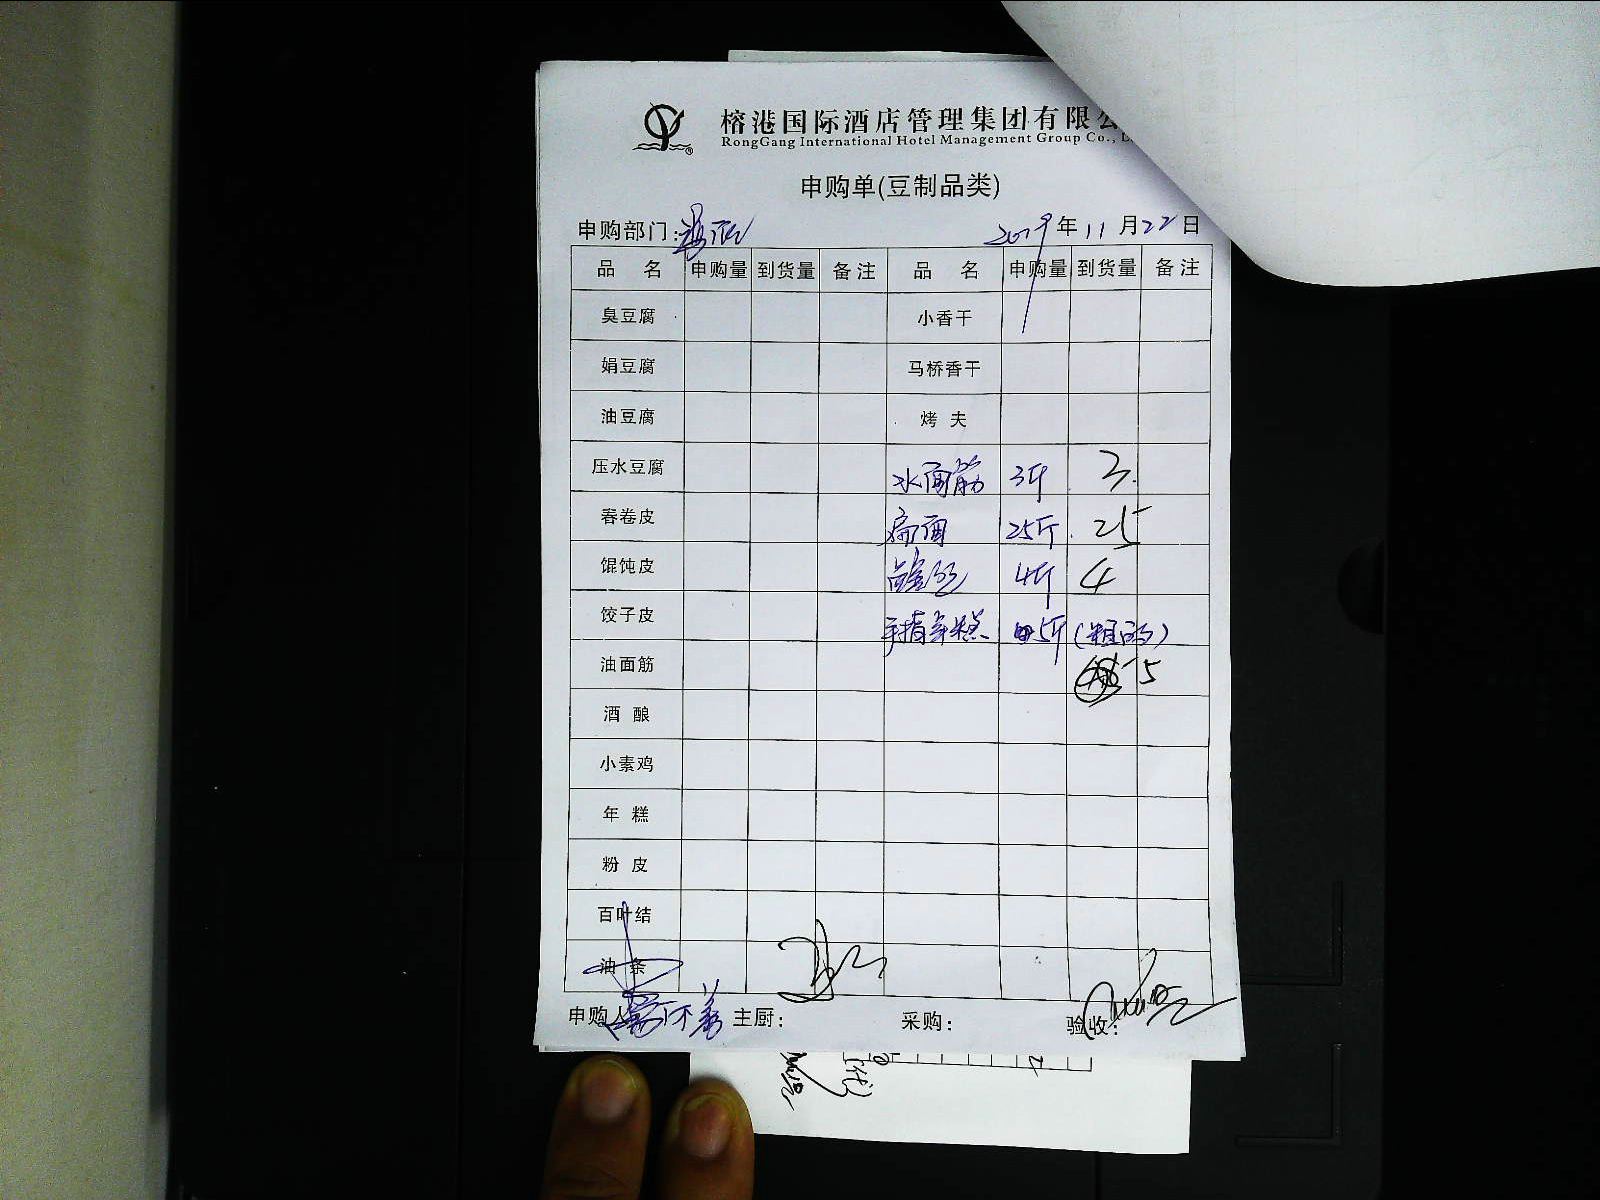 榕港国际酒店管理集团有限公
RongGang International Hotel Management Group Co.,
申购单(豆制品类)
申购部门: 2019年11月22日
品 名 申购量 到货量 备注 品 名 申购量 到货量 备注
臭豆腐 小香干
娟豆腐 马桥香干
油豆腐 烤 夫
压水豆腐 水面筋 3斤 3
春卷皮 扁面 25斤 25
馄饨皮 4斤 4
饺子皮 手指年糕 5斤 (粗的)
油面筋 5
酒 酿
小素鸡
年 糕
粉 皮
百叶结
油 条
申购人 主厨: 采购: 验收:
(代)